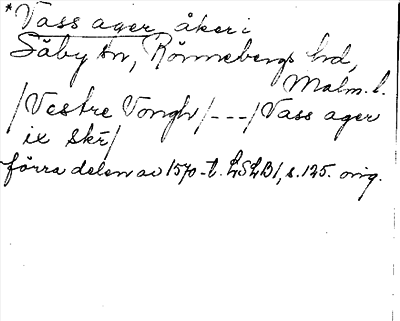 *Vass ager, åker i
Säby sn, Rönnebergs hd,
Malm. l.
/Vestre Vongh/ - - - /Vass ager
ix skr/
förra delen av 1570-t. LSLB1, s. 125. orig.